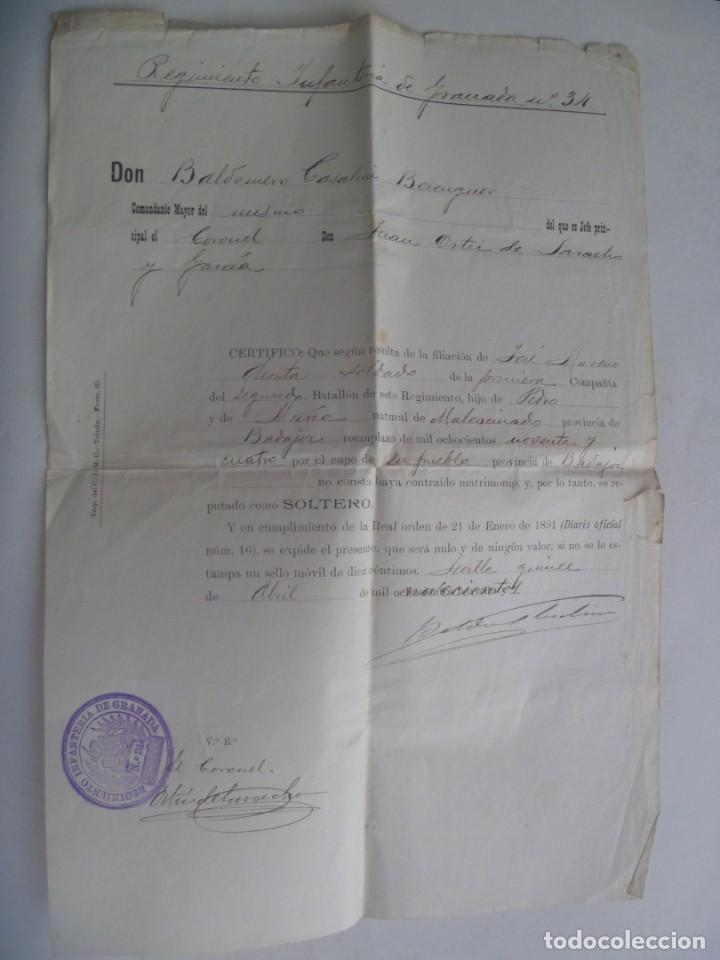 Regimiento Infantería de Granada nº. 34
Don Baldomero Casalini Berenguer
Comandante Mayor del mismo del que es Jefe prin-
sipal el Coronel Don Juan Ortiz de Saracho
y García
CERTIFICO: Que según resulta de la filiación de José Moreno
Acosta soldado de la primera Compañía
del segundo Batallón de este Regimiento, hijo de Pedro
y de María natural de Malcocinado provincia de
Badajoz reemplazo de mil ochocientos noventa y
cuatro por el cupo de su pueblo provincia de Badajoz
no consta haya contraído matrimonio, y, por lo tanto, es re-
putado como SOLTERO.
Y en cumplimiento de la Real orden de 21 de Enero de 1891 (Diario oficial
núm. 16), se expide el presente, que será nulo y de ningún valor, si no se le es-
tampa un sello móvil de diez céntimos. Sevilla quince
de Abril de mil novecientos
V.º B.º
El Coronel.
Ortiz de Saracho
REGIMIENTO INFANTERIA DE GRANADA
N.º 34
Imp. del C. de M. C.—Toledo.—Form. 60.
todocoleccion
todocoleccion.net